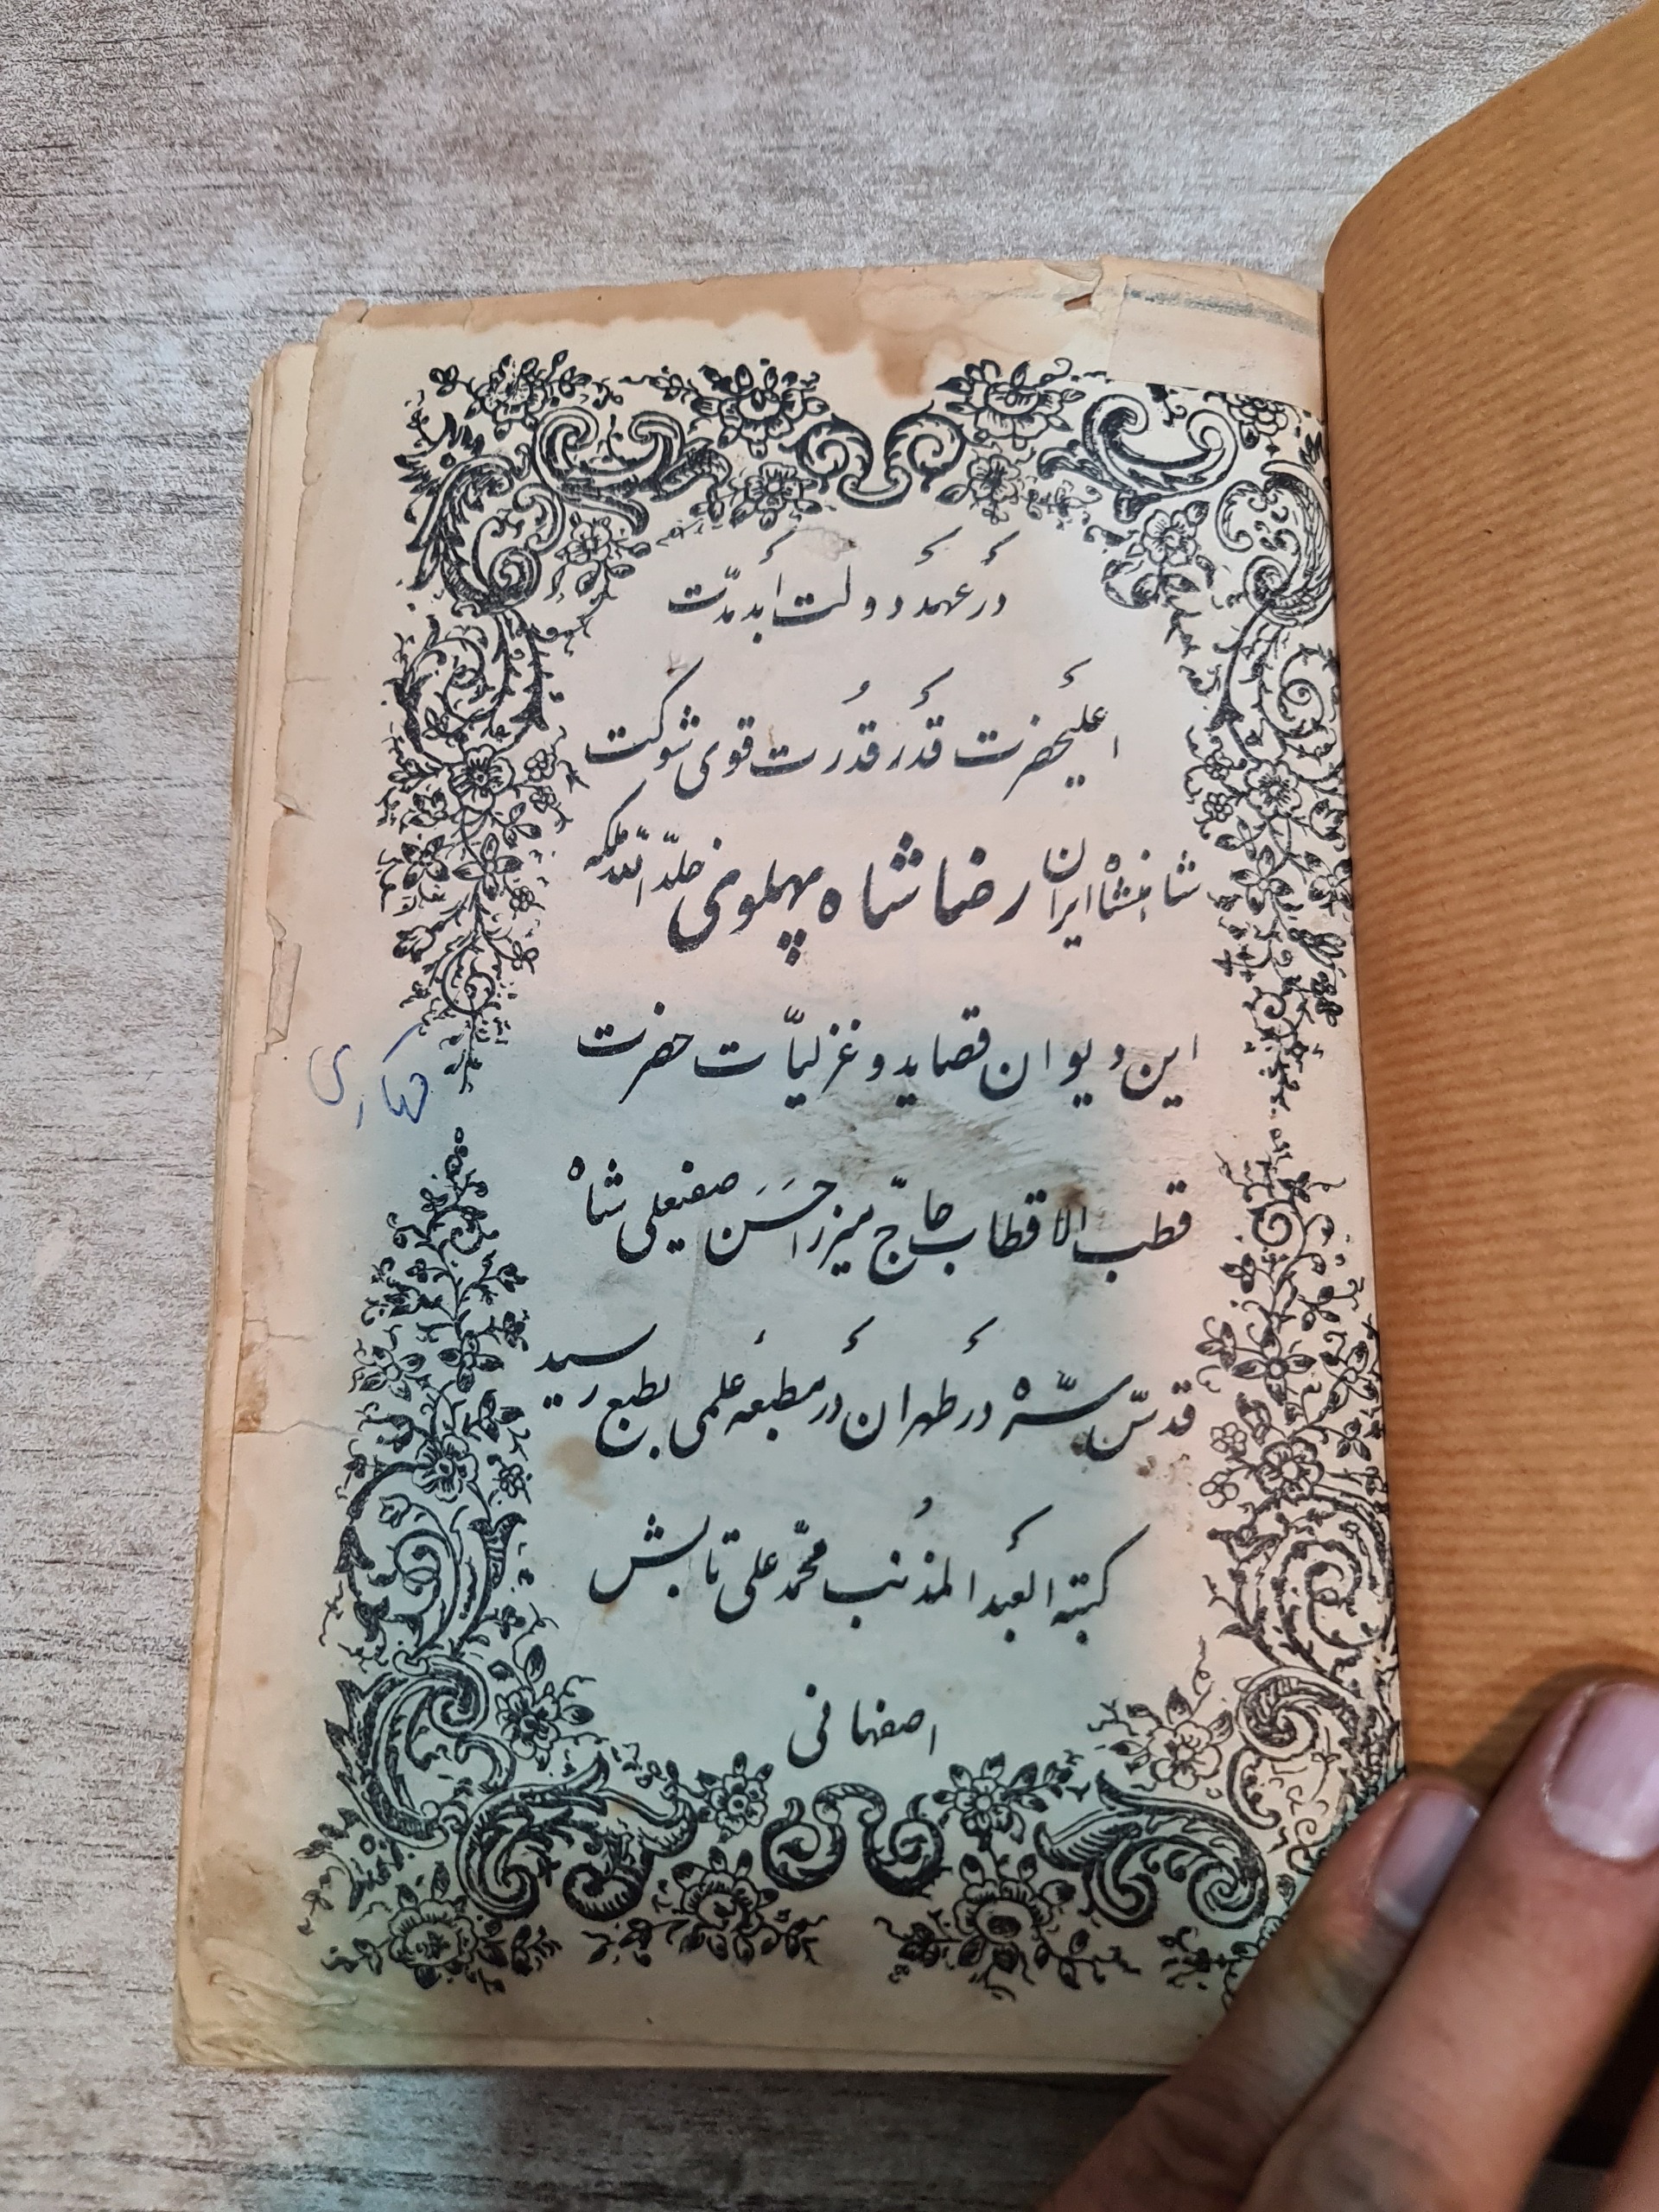 در عهد دولت ابد مدّت
اعلیحضرت قَدَر قُدرت قوی شوکت
شاهنشاه ایران رضا شاه پهلوی خلّد اللّه ملکه
این دیوان قصاید و غزلیّات حضرت
قطب الاقطاب حاجّ میرزا حَسَن صفیعلی شاه
قدسّ سرّه در طهران در مطبعه علمی بطبع رسید
کتبته العبد المذُنب محمّد علی تابش
اصفهانی